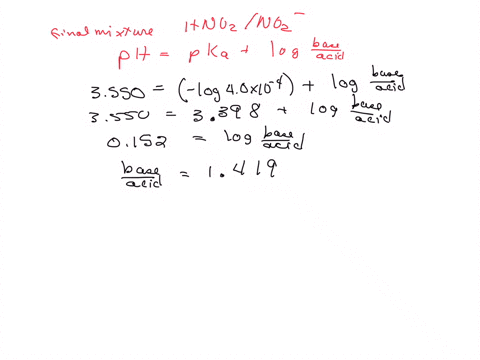 Final mixture HNO2/NO2-
pH = pKa + log base/acid
3.550 = (-log 4.0x10^-4) + log base/acid
3.550 = 3.398 + log base/acid
0.152 = log base/acid
base/acid = 1.419